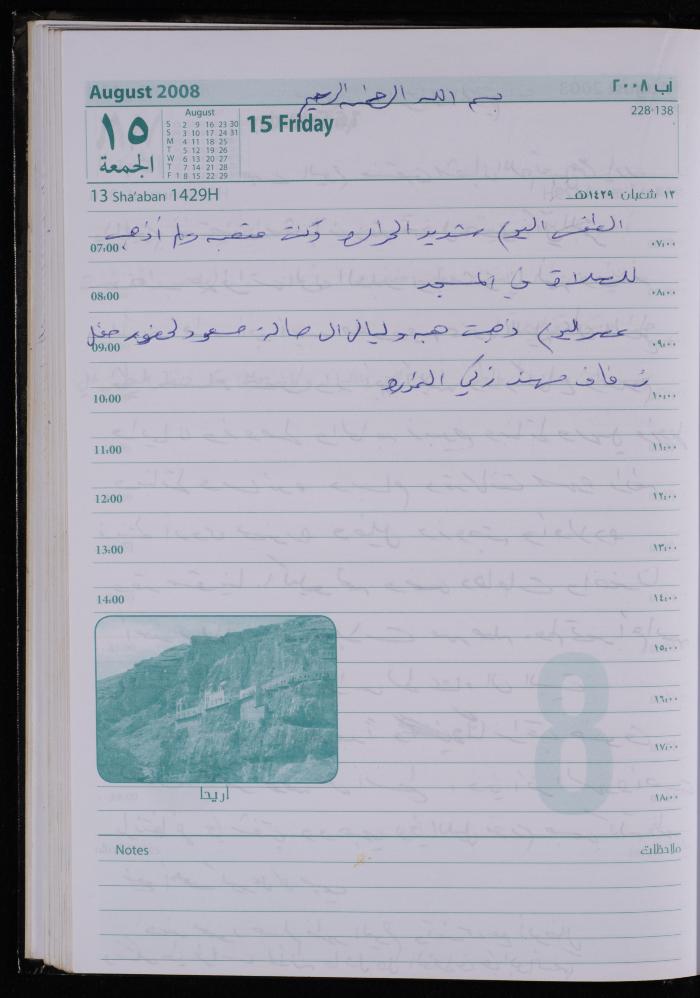 August 2008
بسم الله الرحمن الرحيم
آب ٢٠٠٨
١٥
الجمعة
August
S 2 9 16 23 30
S 3 10 17 24 31
M 4 11 18 25
T 5 12 19 26
W 6 13 20 27
T 7 14 21 28
F 1 8 15 22 29
15 Friday
228-138
13 Sha'aban 1429H
١٣ شعبان ١٤٢٩هـ
الطقس اليوم شديد الحرارة وكنت متعبه ولم أذهب
07:00
٠٧:٠٠
للصلاة في المسجد
08:00
٠٨:٠٠
عصر اليوم ذهبت هبه وليال الى صالة مسعود لحضور حفل
09:00
٠٩:٠٠
زفاف مهند زكي
10:00
١٠:٠٠
11:00
١١:٠٠
12:00
١٢:٠٠
13:00
١٣:٠٠
14:00
١٤:٠٠
١٥:٠٠
١٦:٠٠
8
١٧:٠٠
١٨:٠٠
أريحا
Notes
ملاحظات